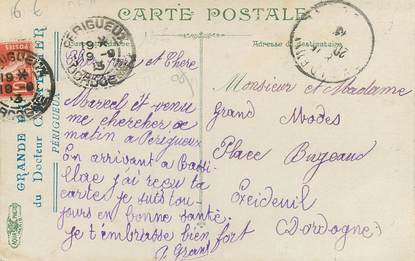 6 6
CARTE POSTALE
Correspondance
Adresse du destinataire
PERIGUEUX
19 * 
19 -9
3
DORDOGNE
GRANDE
du Docteur
PÉRIGUEUX
Cher et Chere
Marcel est venu
me chercher ce
matin a Perigueux
En arrivant a Bassi-
llac j'ai reçu ta
carte je suis tou-
jours en bonne santé.
je t'embrasse bien fort
Monsieur et Madame
Grand Modes
Place Bugeaud
Exeideuil
(Dordogne)